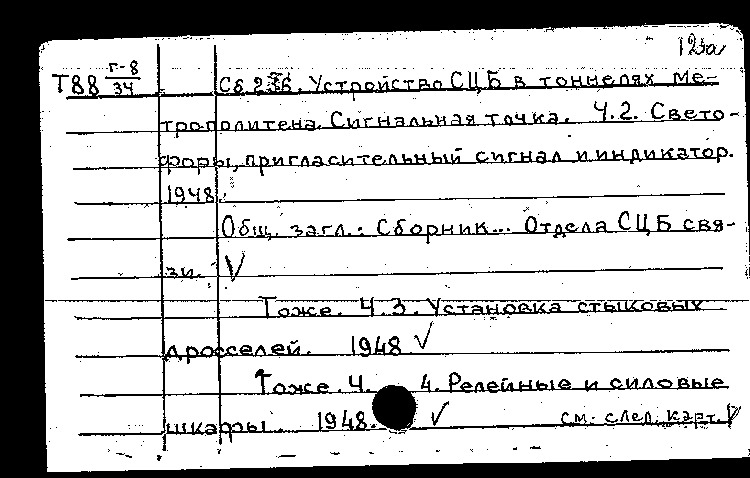 123а
Т88 г-8/34 Сб. 236. Устройство СЦБ в тоннелях ме-
трополитена. Сигнальная точка. Ч.2. Свето-
форы, пригласительный сигнал и индикатор.
1948.
Общ. загл.: Сборник... Отдела СЦБ свя-
зи. V
Тоже. Ч.3. Установка стыковых
дросселей. 1948 V
Тоже. Ч. 4. Релейные и силовые
шкафы. 1948. V см. след. карт. V